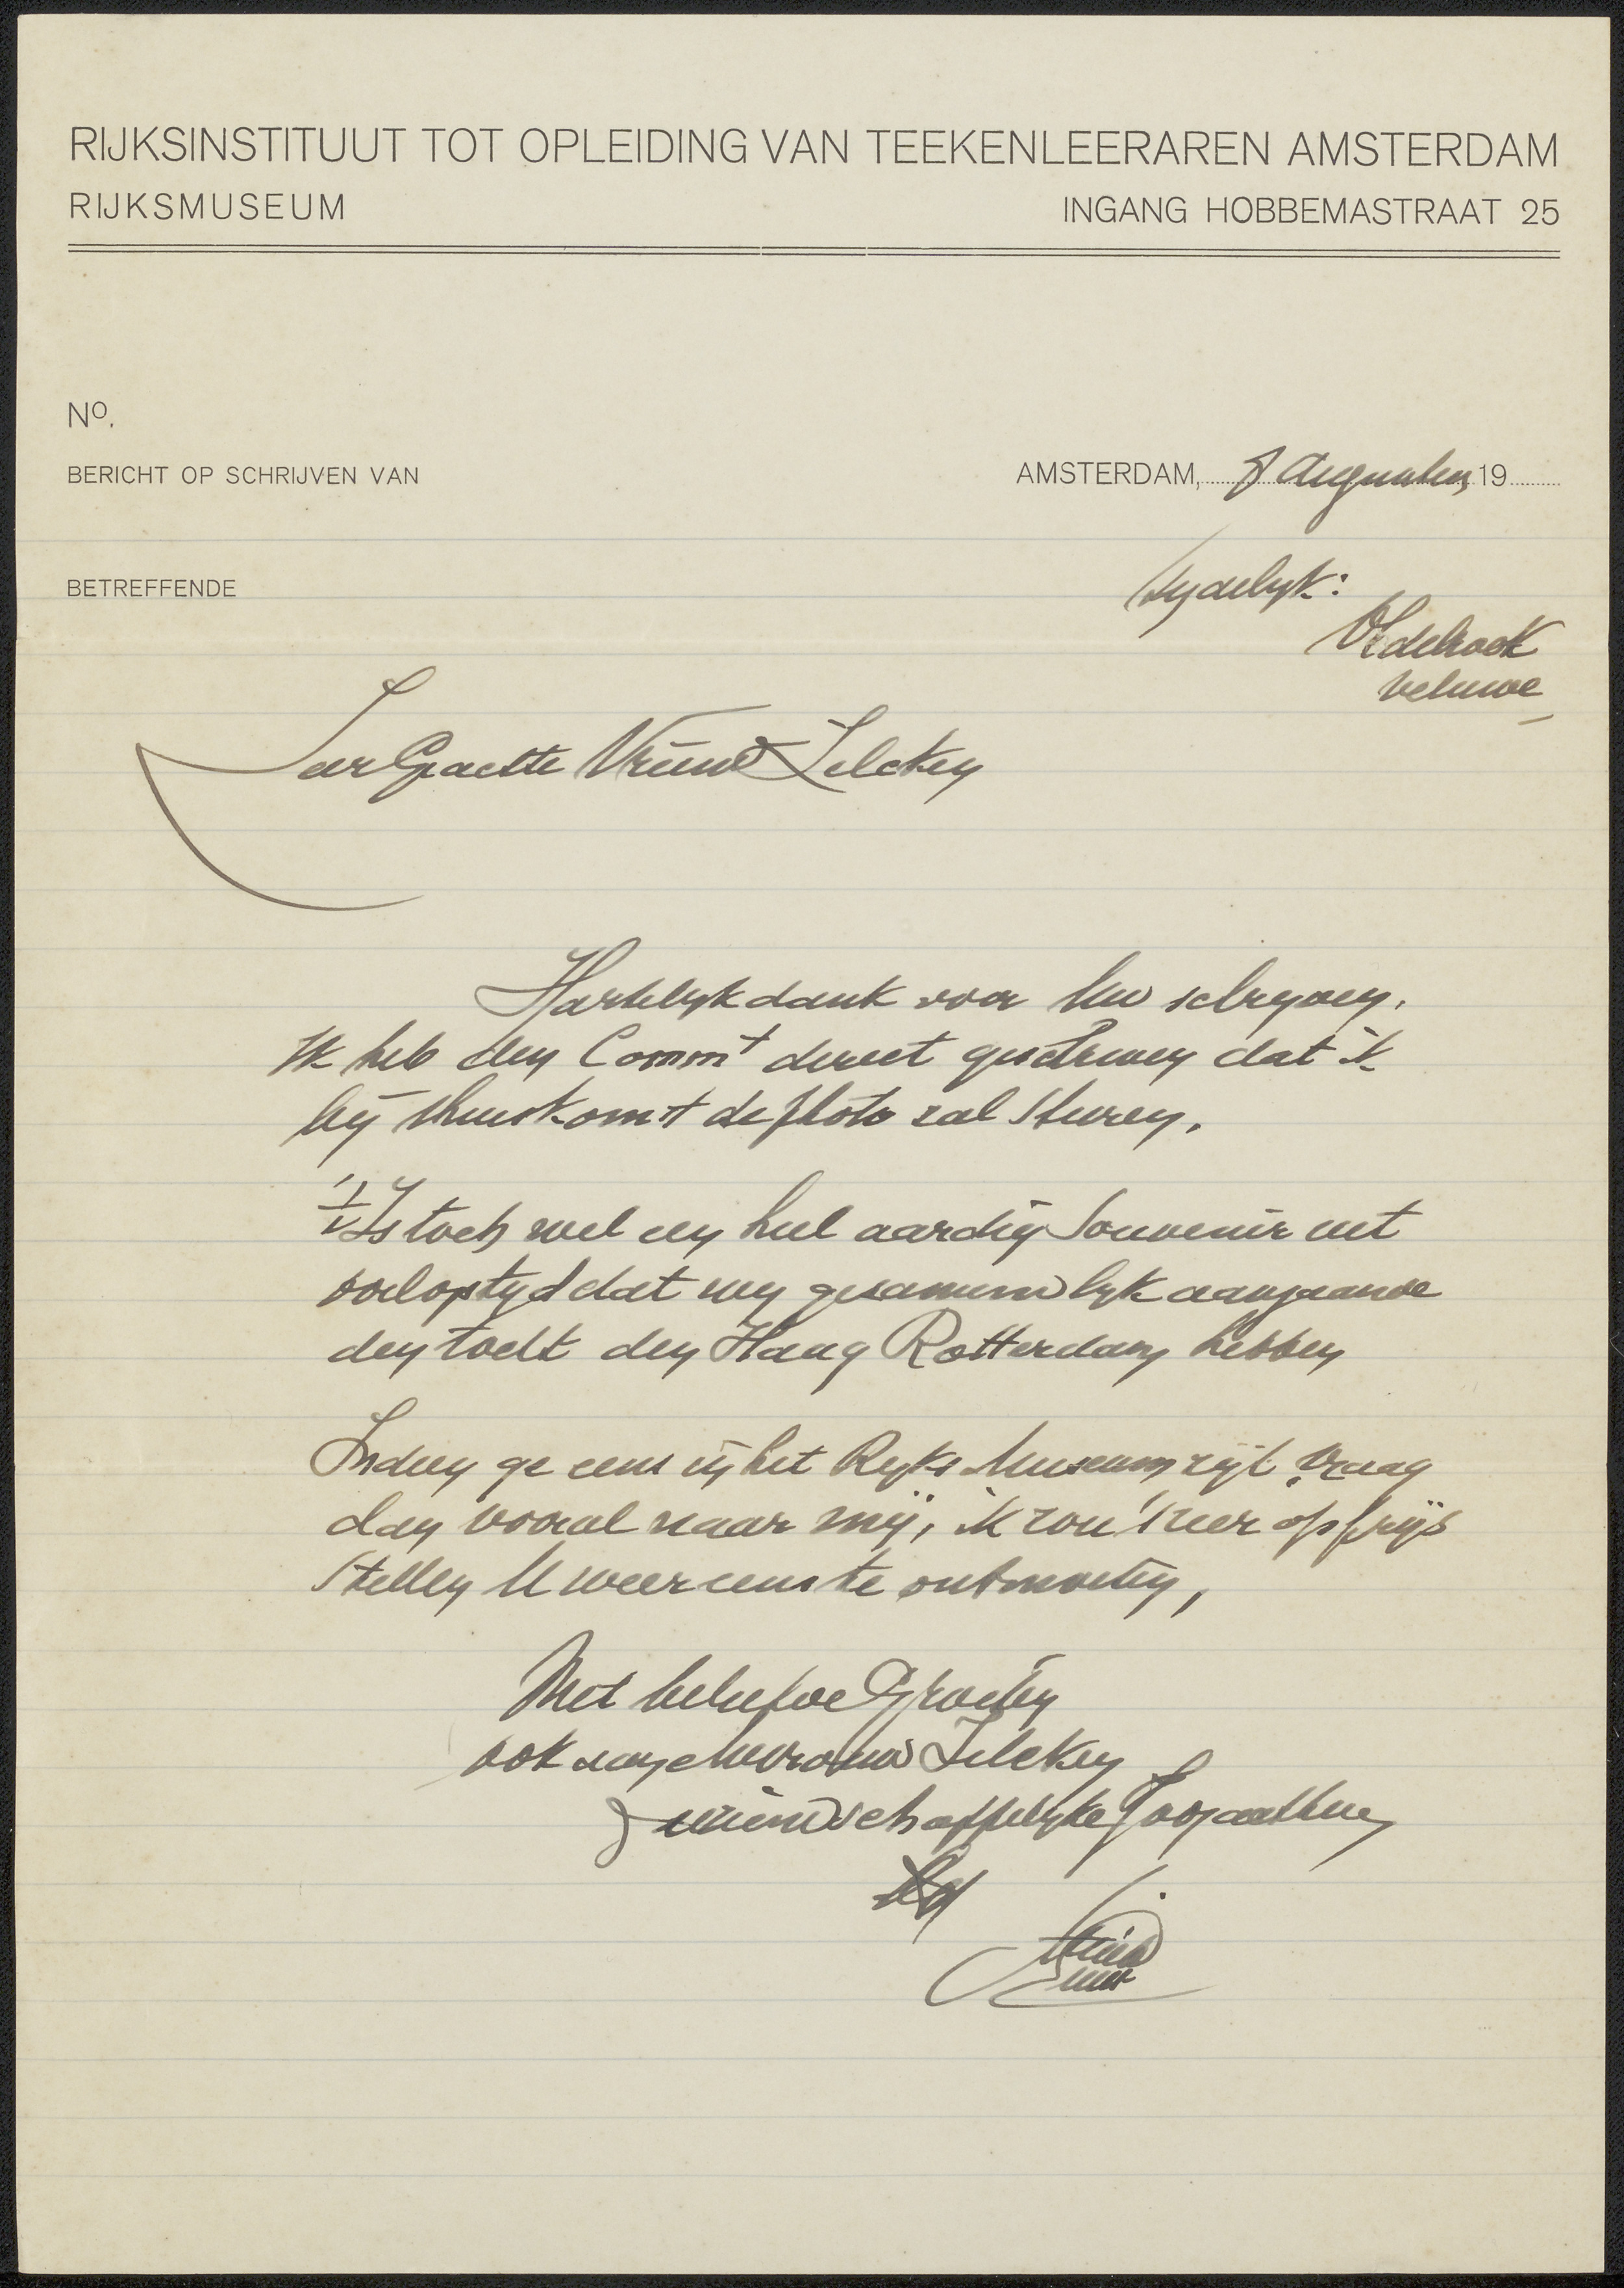 RIJKSINSTITUUT TOT OPLEIDING VAN TEEKENLEERAREN AMSTERDAM
RIJKSMUSEUM INGANG HOBBEMASTRAAT 25
No.
BERICHT OP SCHRIJVEN VAN AMSTERDAM, 8 Augustus 19
BETREFFENDE
tydelyk:
Oldebroek
Veluwe
Zeer Geachte Vriend Zilcken
Hartelyk dank voor Uw schryven.
Ik heb den Commt direct geschreven dat ik
bij thuiskomst de photo zal sturen.
't Is toch wel een heel aardig Souvenir uit
oorlogstyd dat wy gezamendlyk aangaande
den tocht den Haag Rotterdam hebben
Indien ge eens in het Ryks Museum zijt, vraag
dan vooral naar mij, ik zou 't zeer op prijs
stellen U weer eens te ontmoeten,
Met beleefde Groeten
ook aan Mevrouw Zilcken
& vriendschappelyke Hoogachting